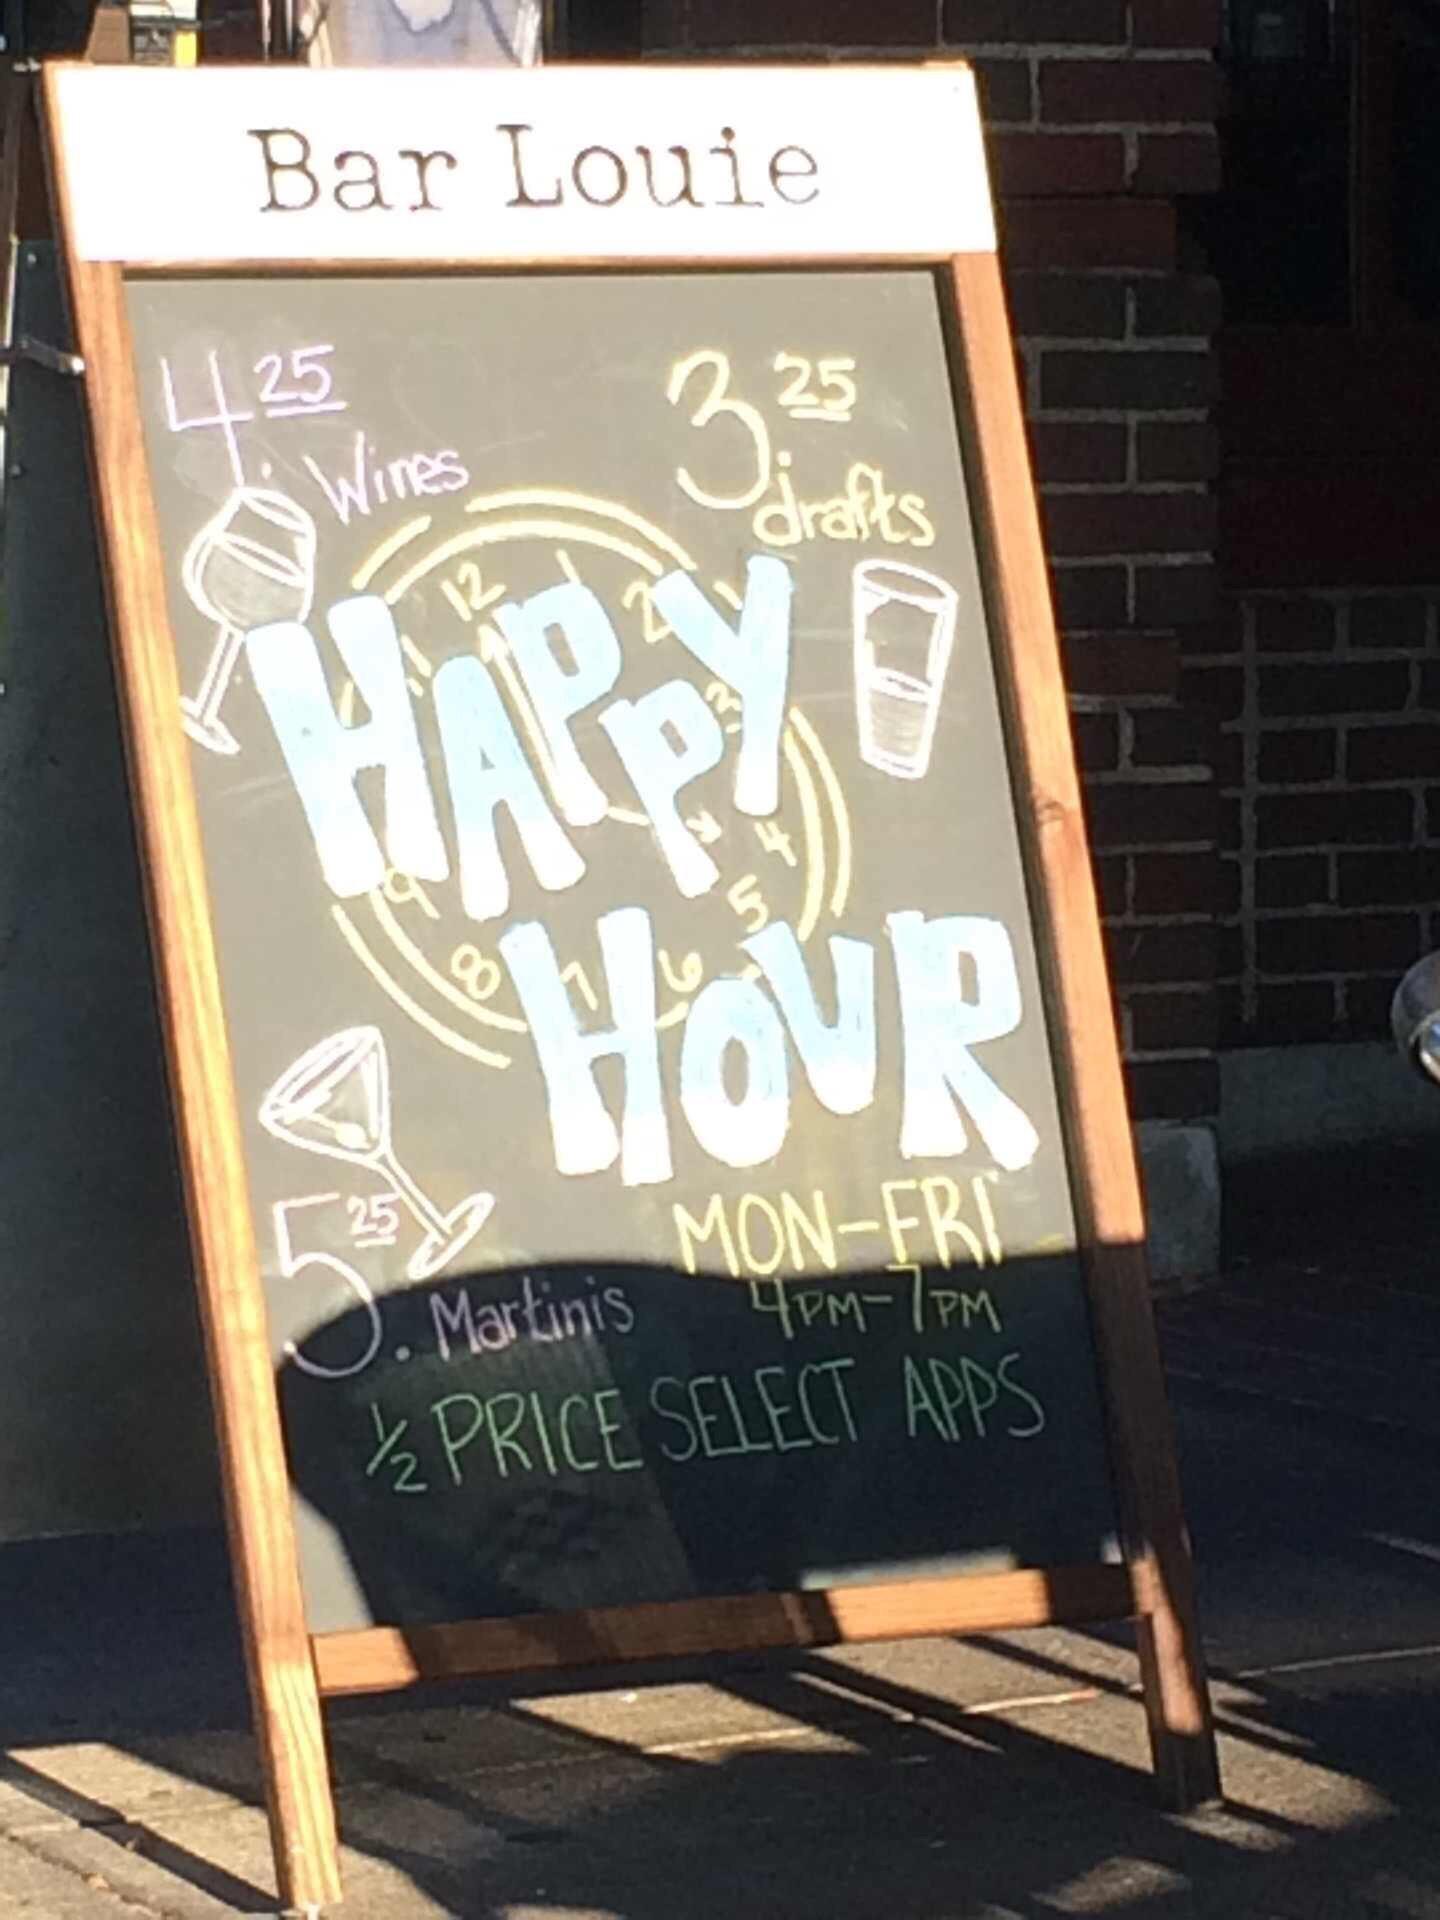 Bar Louie
4.25
Wines
3.25
drafts
12 1 2
11
HAPPY
3
4
9
5
8 7 6
HOUR
5.25
Martinis
MON-FRI
4PM-7PM
1/2 PRICE SELECT APPS